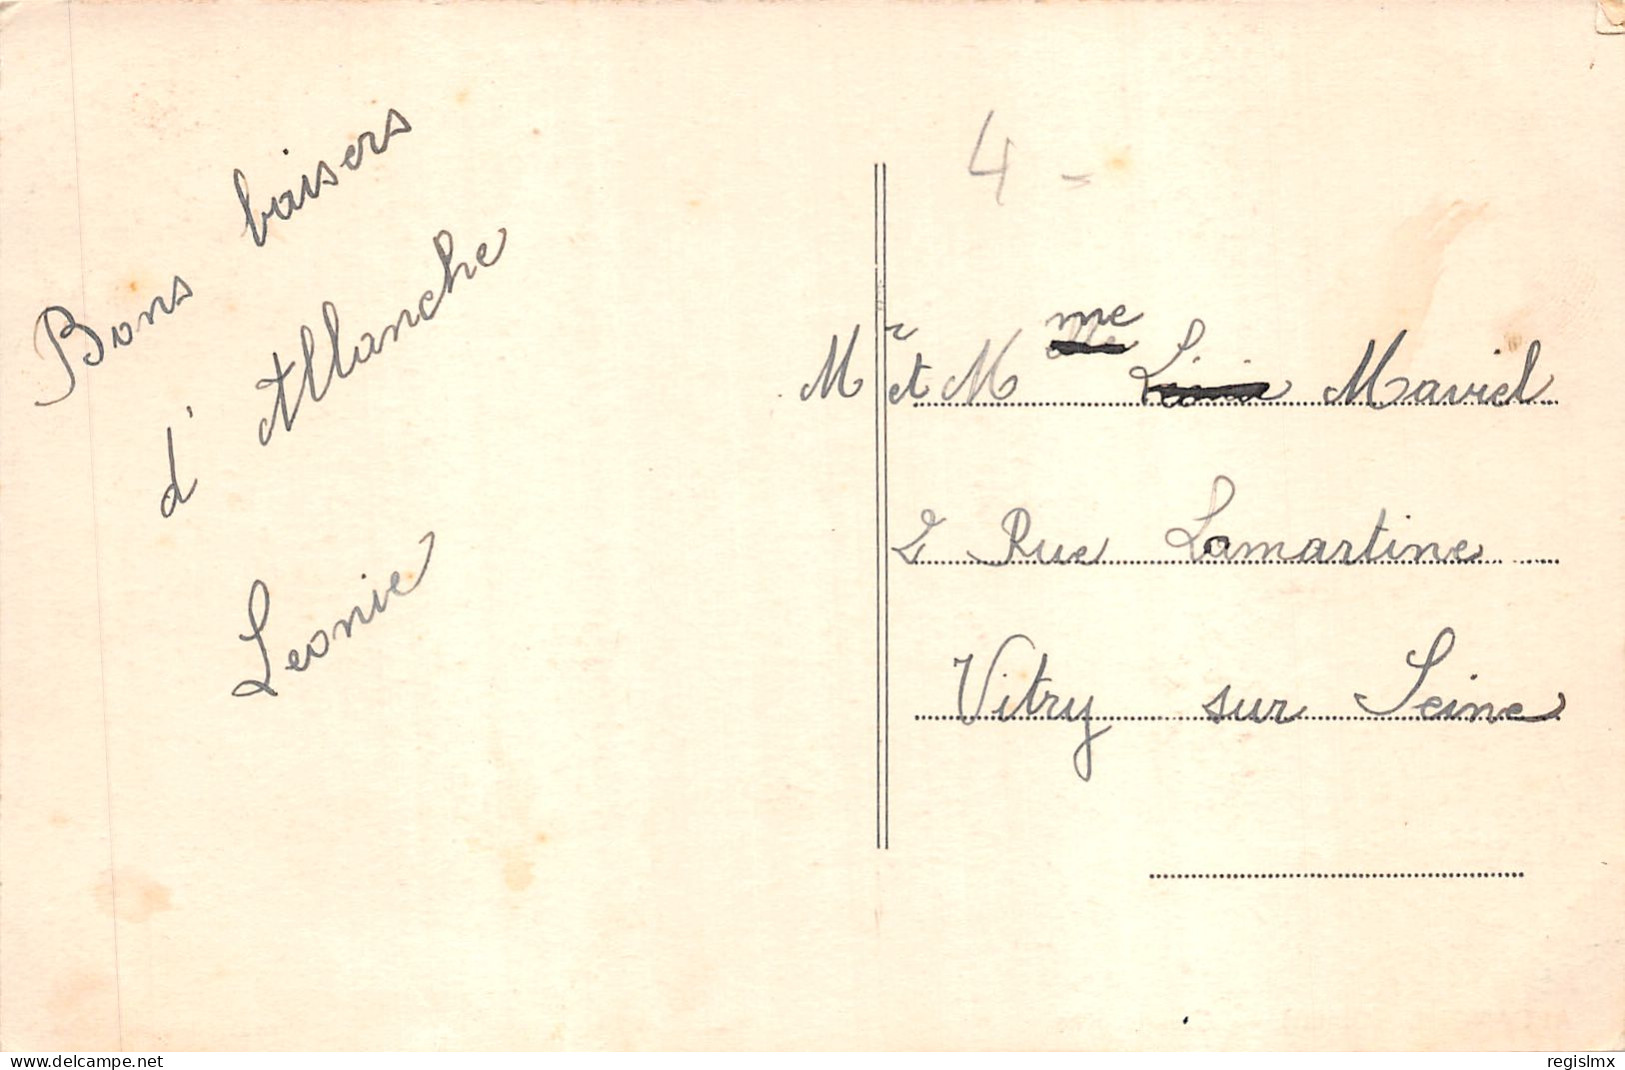 Bons baisers
d'Allanche
Leonie
4 -
Mr et Mme Maviel
2 Rue Lamartine
Vitry sur Seine
delcampe.net
regislmx